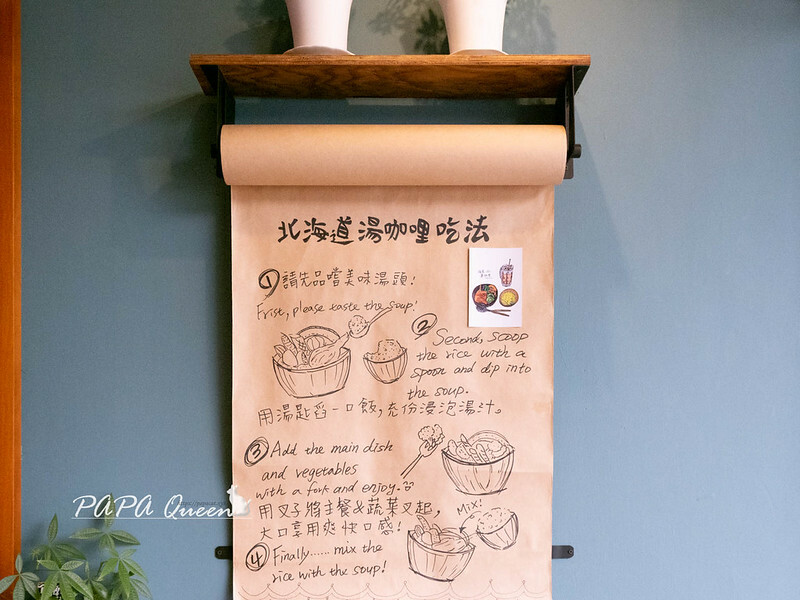 北海道湯咖哩吃法
①請先品嚐美味湯頭!
Frist, please taste the soup!
② Second, scoop
the rice with a
spoon and dip into
the soup.
用湯匙舀一口飯,充份浸泡湯汁。
③ Add the main dish
and vegetables
with a fork and enjoy.
用叉子將主餐&蔬菜叉起,
大口享用爽快口感!
Mix!
④ Finally...... mix the
rice with the soup!
PAPA Queen